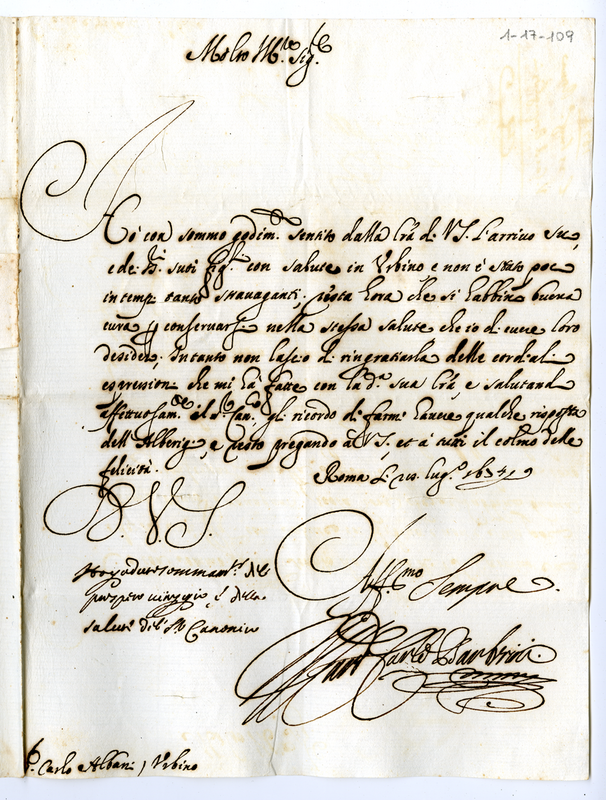 1-17-109
Molto Ill.re Sig.re
Hò con sommo godim.to sentito dalla l'ra di V.S. l'arriuo suo,
e de i suoi sig.ri con salute in Vrbino e non è stato poco
in temp. tanto strauaganti, resta hora che si habbino buona
cura p conseruarsi nella stessa salute che io di cuore loro
desidero, Intanto non lascio di ringratiarla delle cordiali
espressioni che mi hà fatte con la d.a sua l'ra, e salutando
affettuosam.te il s.r Can.co gli ricordo di farmi hauere qualche risposta
dell' Alberig, e resto pregando à V.S., et à tutti il colmo delle
felicità. Roma li 20. lug.o
D. V. S.
Aff.mo Sempre
prospero uiaggio, e della
salute del s.r Canonico
Carlo
S.r Carlo Albani / Vrbino